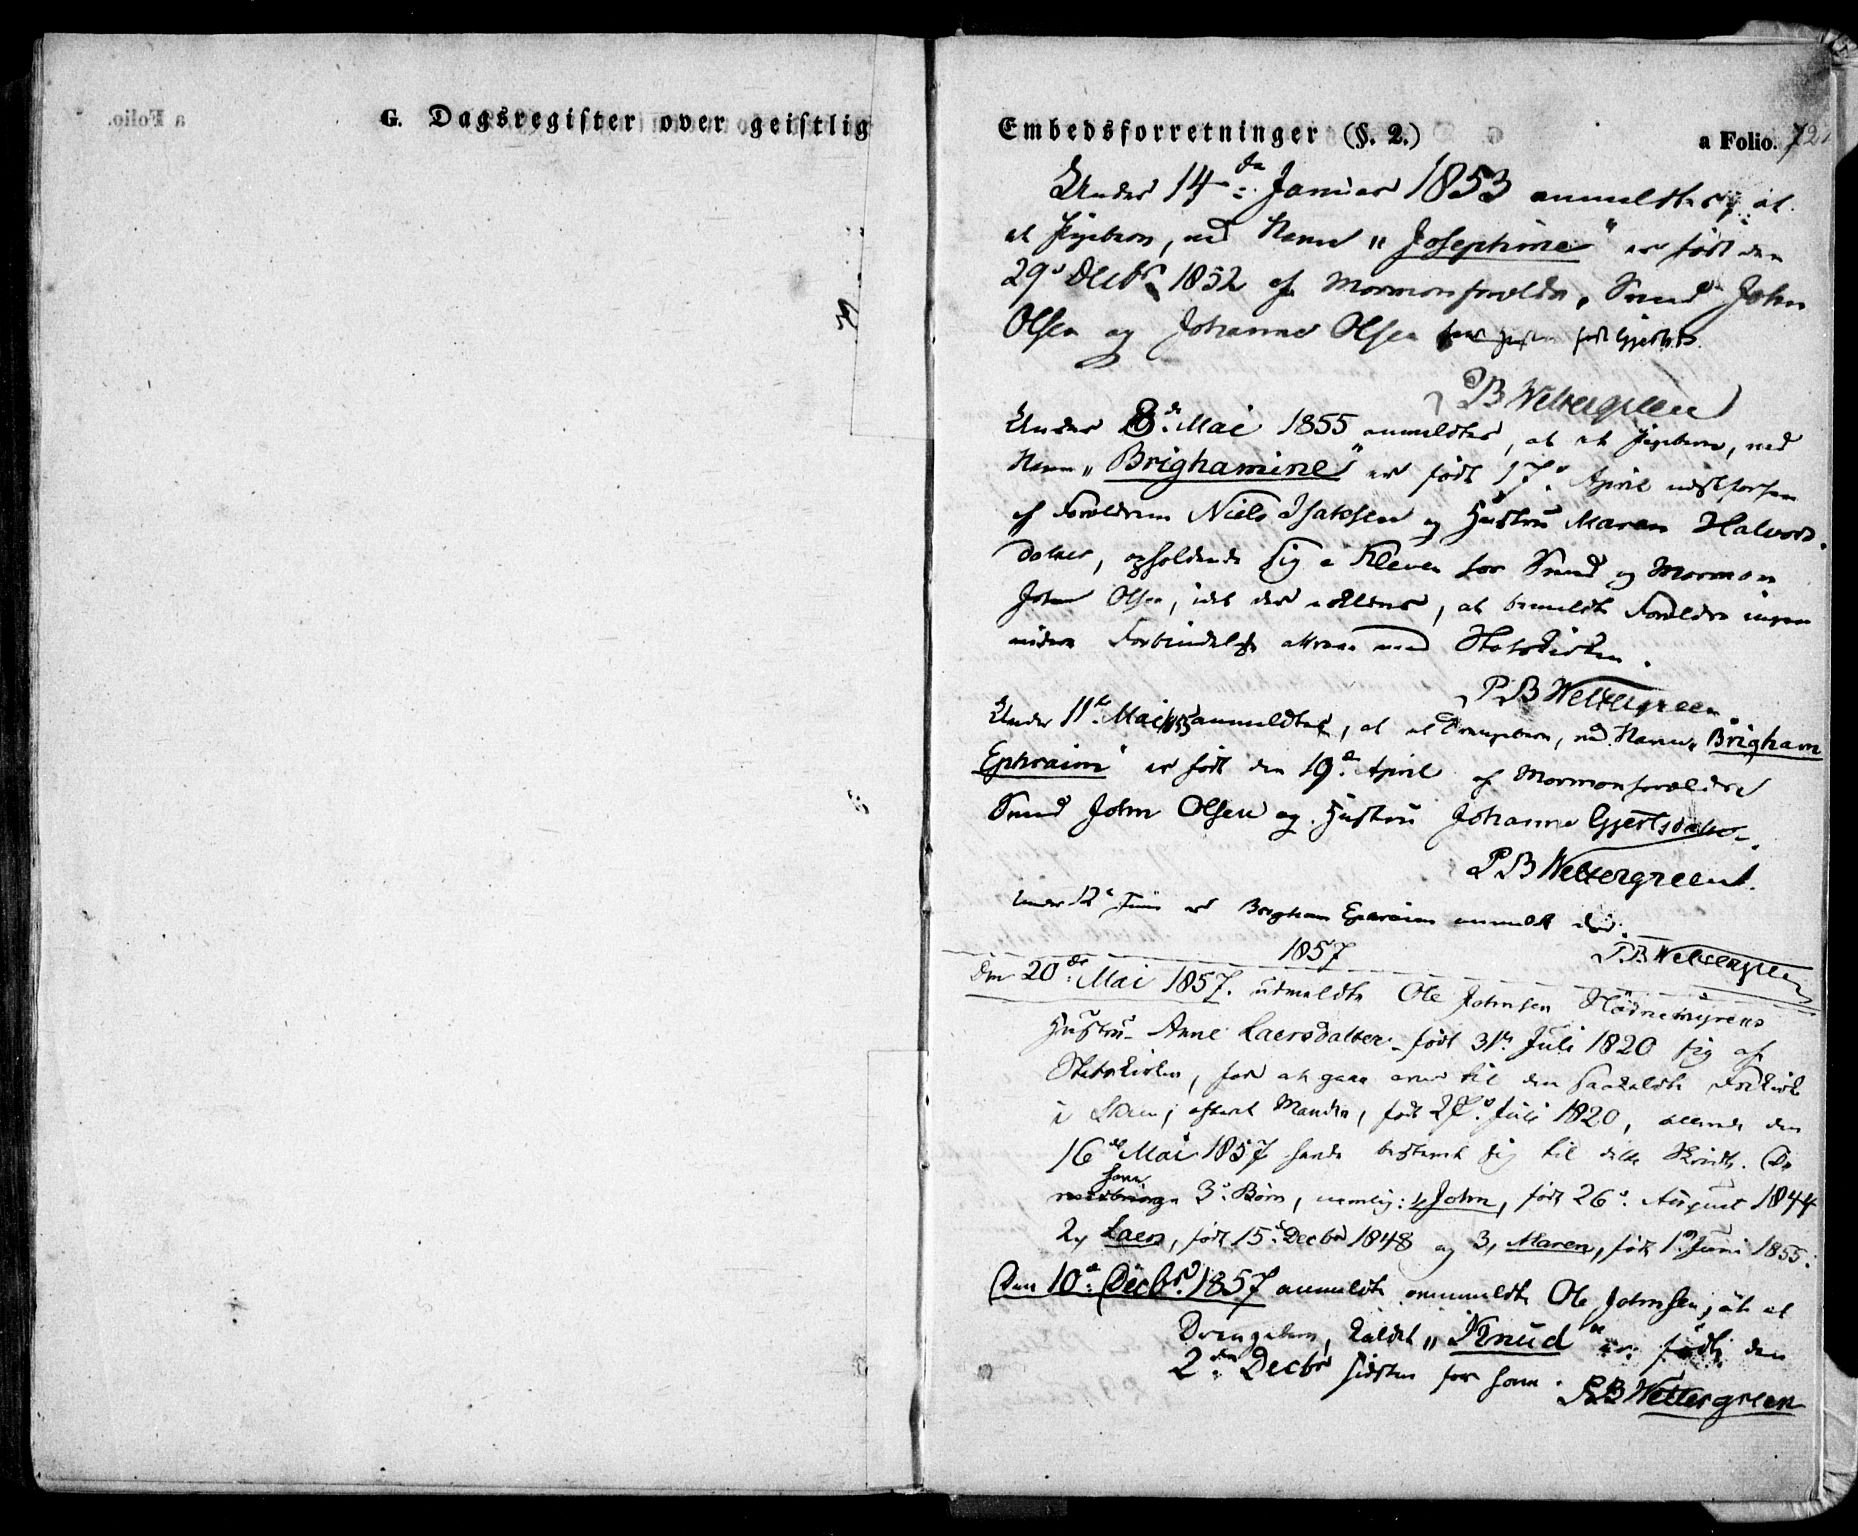 G. Dagsregister over geistlig
Embedsforretninger (§. 2.)
a Folio. 72.
Under 14de Januar 1853 anmeldtes, at
et Pigebarn, ved Navn „Josephine“ er født den
29de Decbr 1852 af Mormonforældre, Smed John
Olsen og Johanne Olsen født Gjerts.
P B Wettergreen
Under 8de Mai 1855 anmeldtes, at et Pigebarn, ved
Navn „Brighamine“ er født 17de April
af Forældrene Niels Isaksen og Hustru Maren Halvors-
datter, opholdende sig i Kleven hos Smed og Mormon
John Olsen, idet der erklæres, at bemeldte Forældre ingen
videre Forbindelse attraae med Statskirken.
P. B Wettergreen
Under 11te Mai 1855 anmeldtes, at et Drengebarn, ved Navn „Brigham
Ephraim“ er født den 19de April af Mormonforældre
Smed John Olsen og Hustru Johanne Gjertsdatter.
P B Wettergreen.
Under 12te Juni er Brigham Epraim anmeldt død.
1857
P. B Wettergreen
Den 20de Mai 1857. udmeldte Ole Johnsen
Hustru Anne Laersdatter født 31te Juli 1820 sig af
Statskirken, for at gaae over til den saakaldte Frikirke
i Skien, efterat Manden, født 27de Juli 1820, allerede den
16de Mai 1857 havde bestemt sig til dette Skridt. De
have
medbringe 3de Børn, nemlig: 1, John, født 26de August 1844
2, Laers, født 15de Decbr 1848 og 3, Maren, født 1ste Juni 1855.
Den 10de Decbr. 1857 anmeldte ommeldte Ole Johnsen, at et
Drengebarn, kaldet „Knud“ er født den
2den Decbr sidsten hos ham. P. B Wettergreen